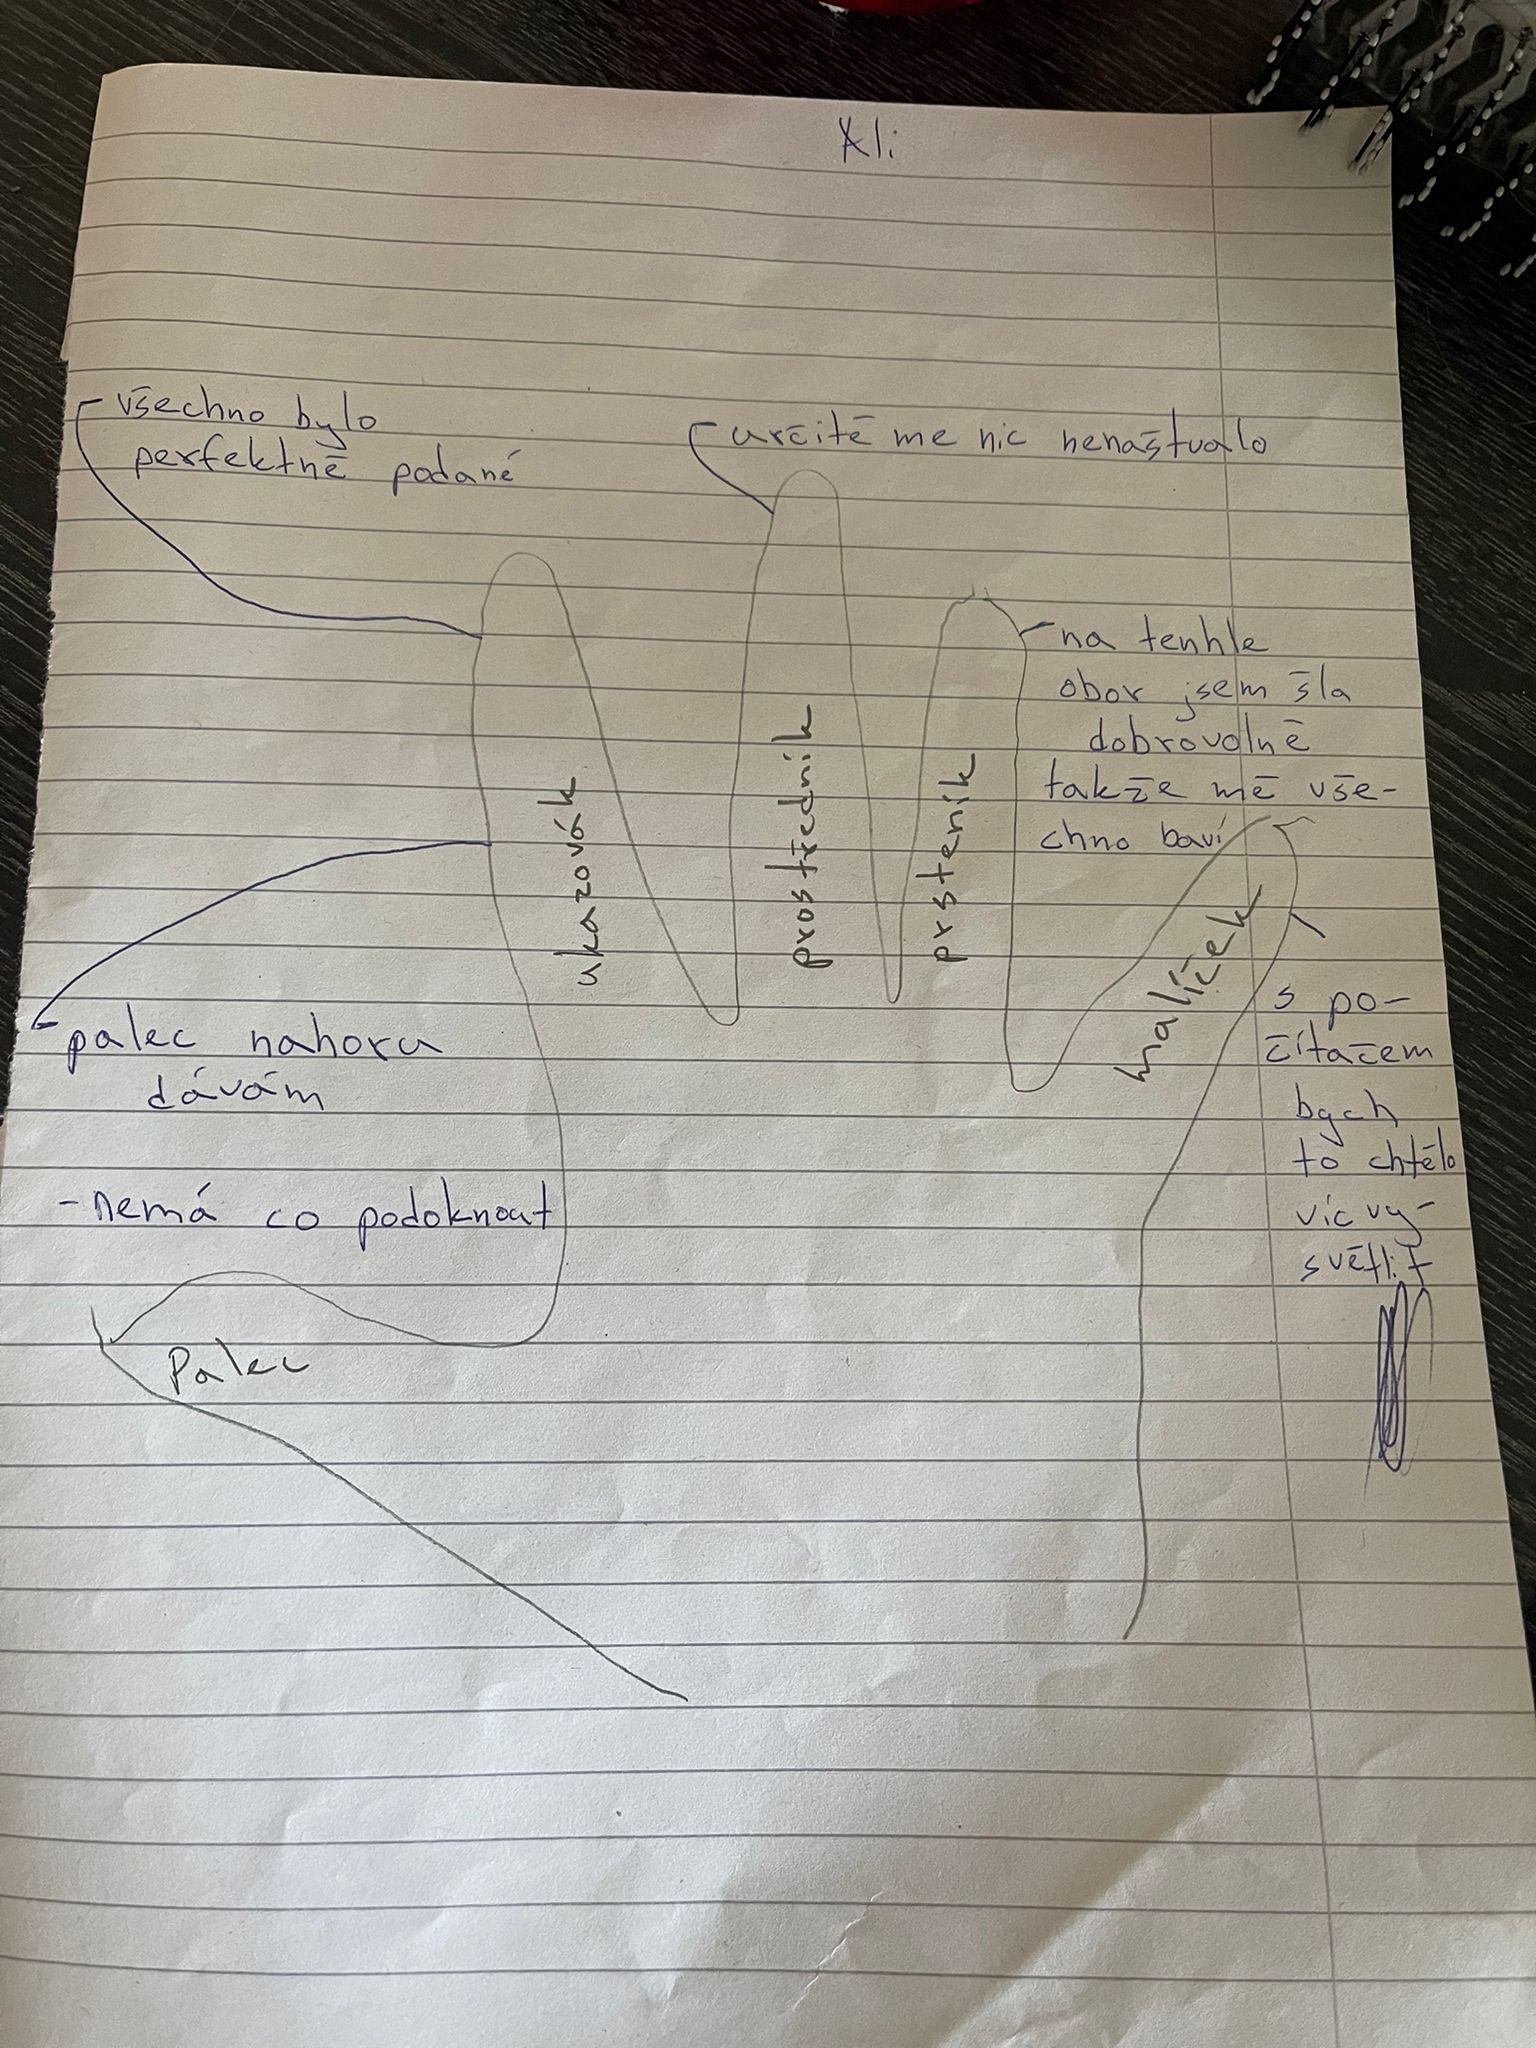 Ali
všechno bylo
perfektně podané
určitě me nic nenaštvalo
na tenhle
obor jsem šla
dobrovolně
takže mě vše-
chno baví
ukazovák
prostředník
prsteník
malíček
s po-
čítačem
bych
to chtělo
víc vy-
světlit
palec nahoru
dávám
-nemá co podoknout
Palec